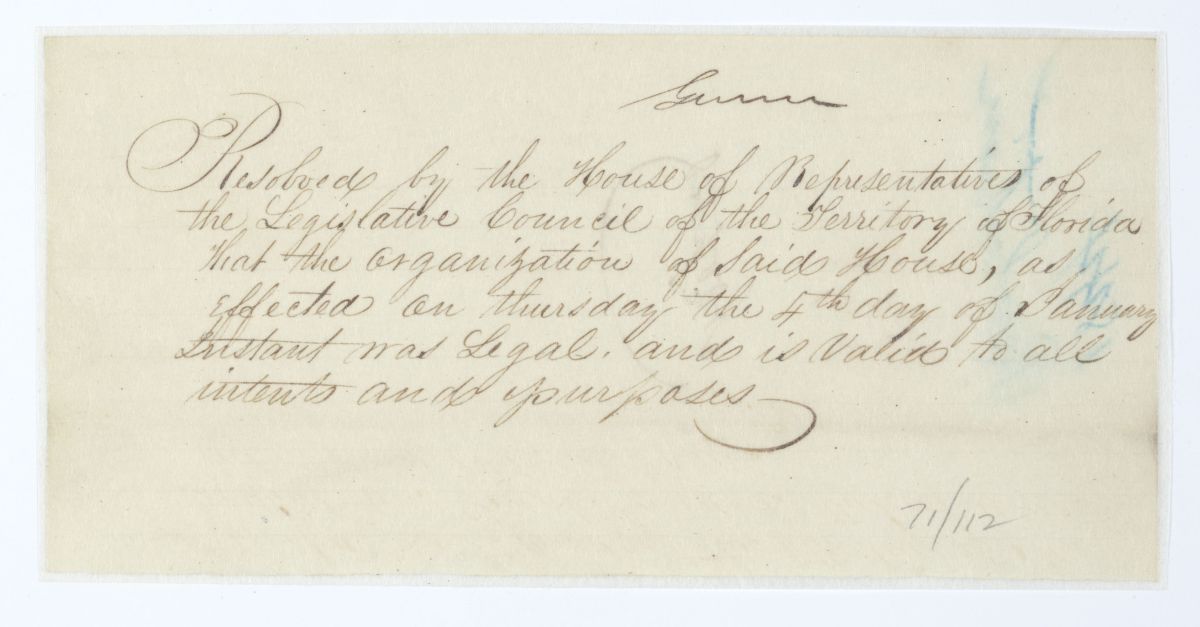 Resolved by the House of Representatives of
the Legislative Council of the Territory of Florida
that the organization of Said House, as
Effected on thursday the 4th day of January
Instant was Legal. and is Valid to all
intents and purposes
71/112